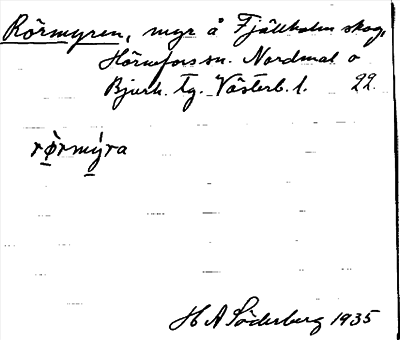 Rörmyren, myr å Fjällholm skog,
Hörnefors sn. Nordmal o
Bjurh. tg. Västerb. l. 22.
rø̀rmýra
H A Söderberg 1935